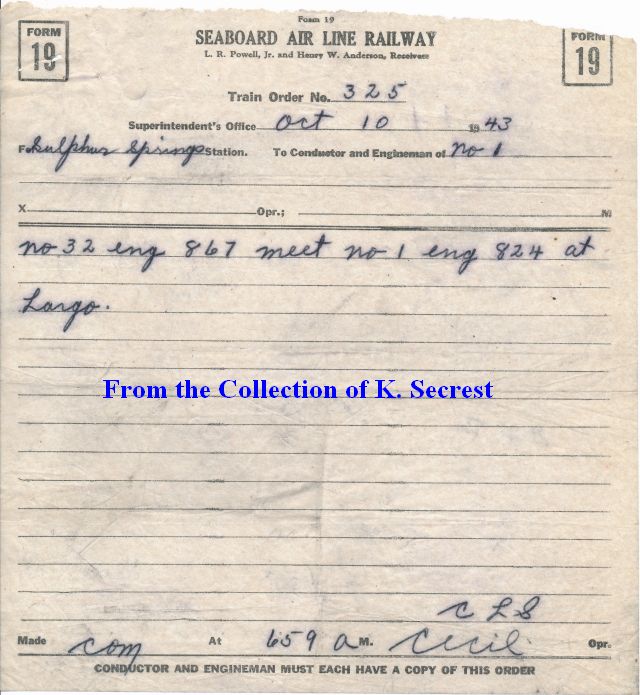 Form 19
FORM
19
SEABOARD AIR LINE RAILWAY
FORM
19
L. R. Powell, Jr. and Henry W. Anderson, Receivers
Train Order No. 325
Superintendent's Office Oct 10 1943
Sulphur Springs Station. To Conductor and Engineman of No 1
X Opr.; M
no 32 eng 867 meet no 1 eng 824 at
Largo.
From the Collection of K. Secrest
C L S
Made com At 659 a M. Cecil Opr.
CONDUCTOR AND ENGINEMAN MUST EACH HAVE A COPY OF THIS ORDER